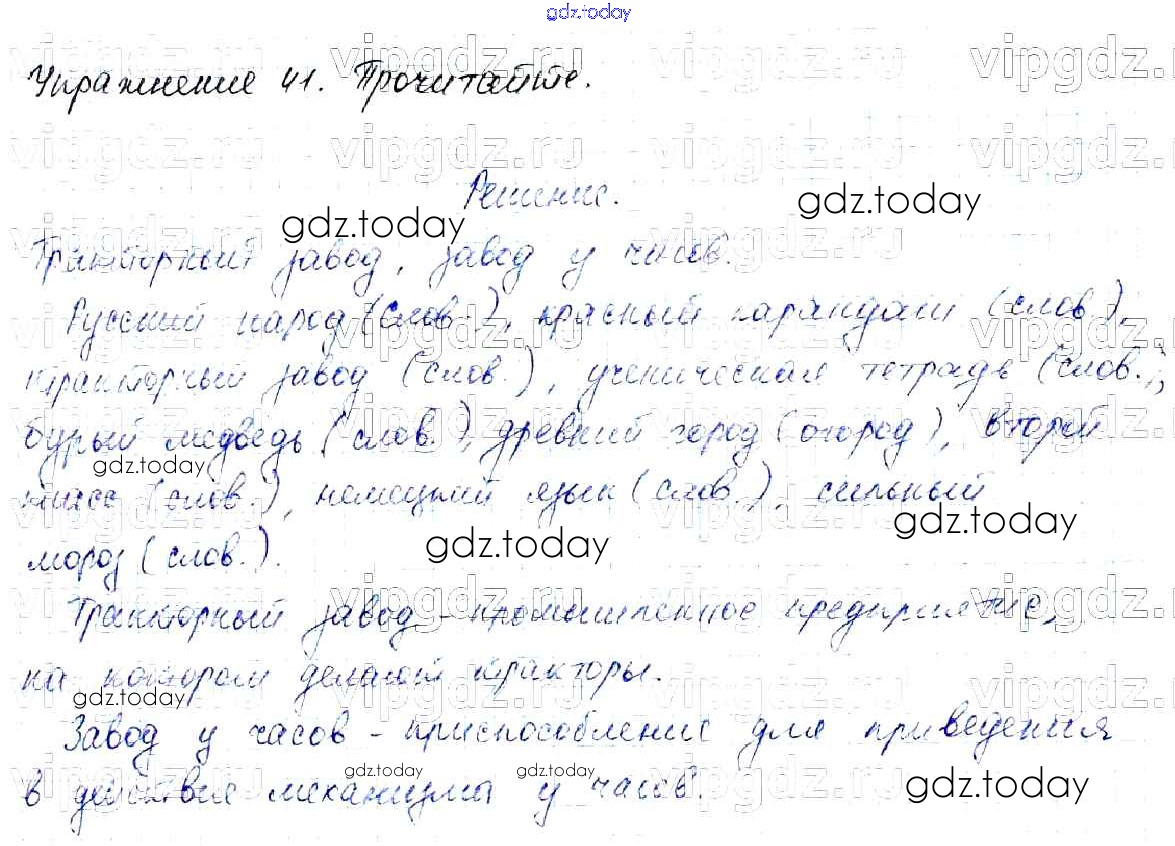 gdz.today
Упражнение 41. Прочитайте.
Решение.
Тракторный завод, завод у часов.
Русский народ (слов.), красный карандаш (слов.),
тракторный завод (слов.), ученическая тетрадь (слов.),
бурый медведь (слов.), древний город (огород), второй
класс (слов.), немецкий язык (слов.), сильный
мороз (слов.).
Тракторный завод – промышленное предприятие,
на котором делают тракторы.
Завод у часов – приспособление для приведения
в действие механизмы у часов.
vipgdz.ru
gdz.today